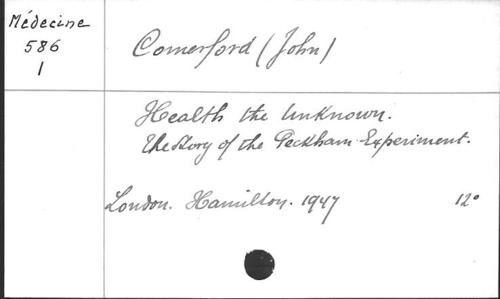 Médecine
586
1
Comerford (John)
Health the Unknown.
The Story of the Peckham Experiment.
London. Hamilton. 1947 12°